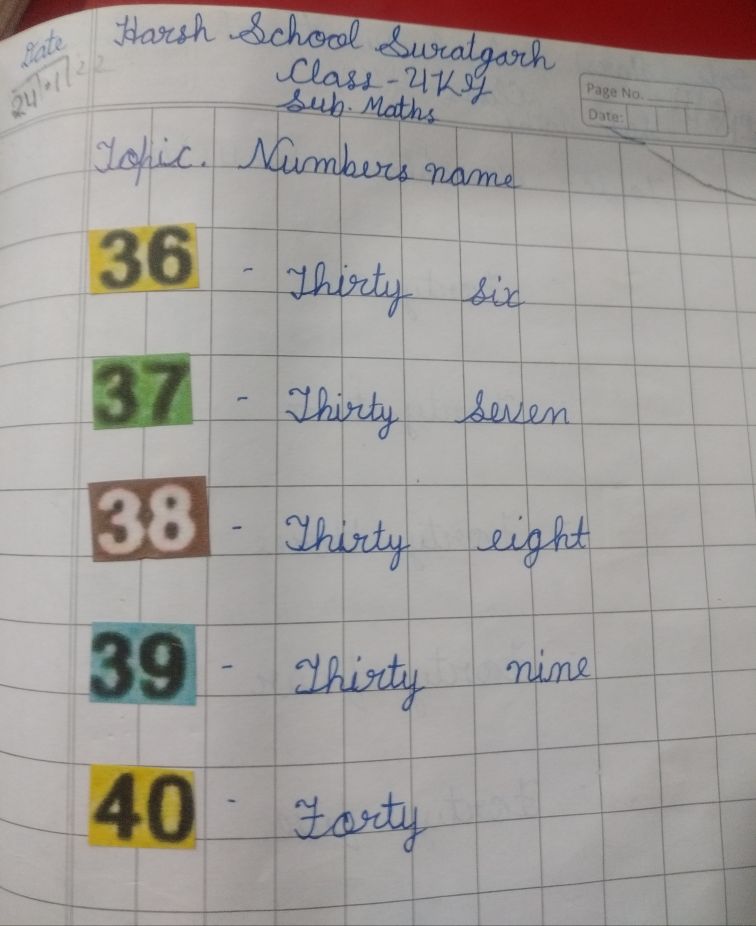 Date
Harsh School Suratgarh
24.1.22
Class - UKG
Sub. Maths
Page No.
Date:
Topic. Numbers name
36 - Thirty six
37 - Thirty seven
38 - Thirty eight
39 - Thirty nine
40 - Forty